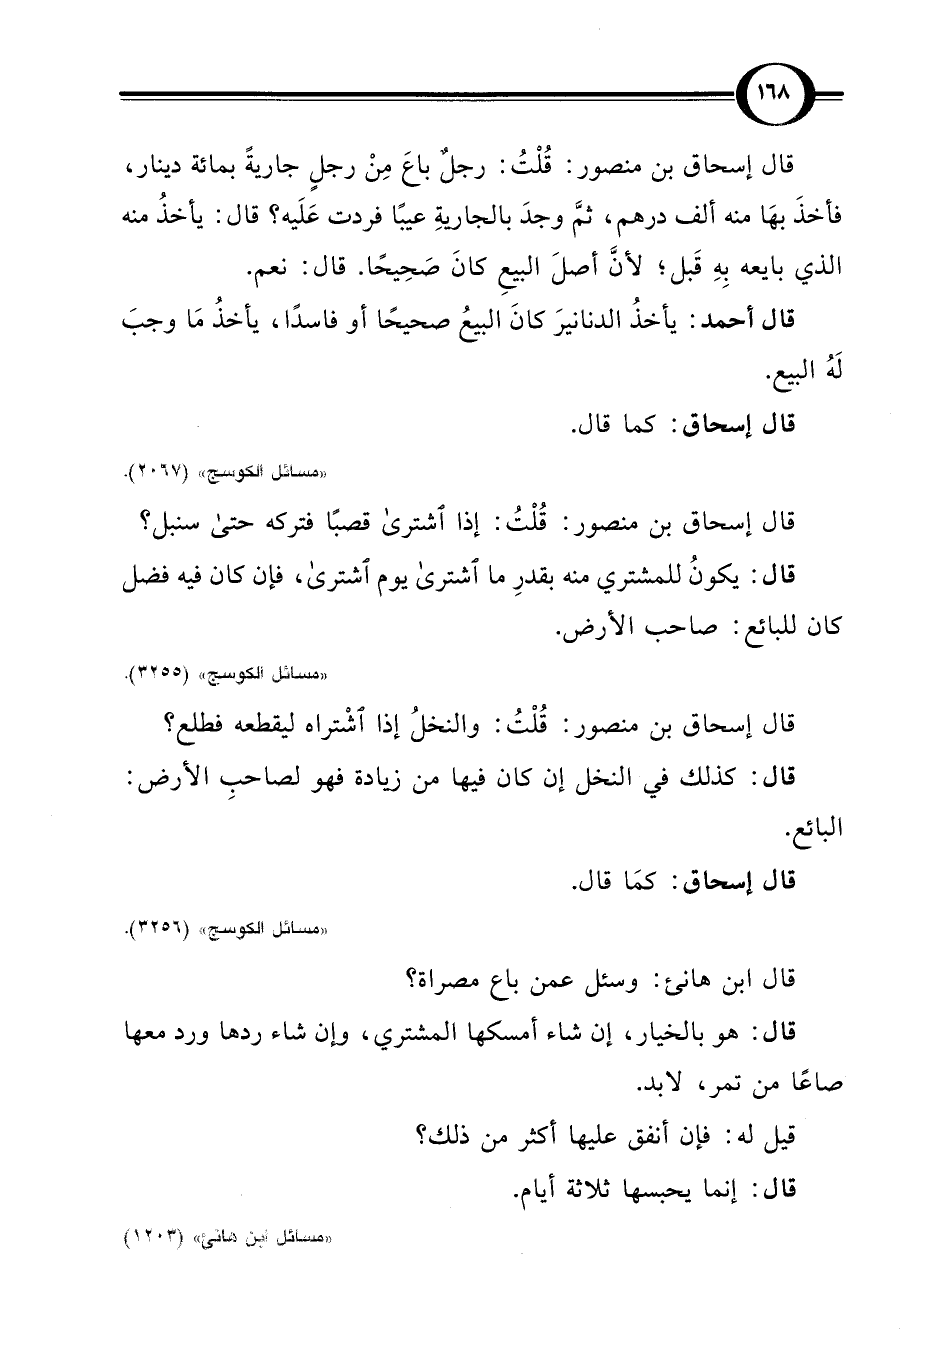 ١٦٨
قال إسحاق بن منصور: قُلْتُ: رجلٌ باعَ مِنْ رجلٍ جاريةً بمائة دينار،
فأخذَ بهَا منه ألف درهم، ثمَّ وجدَ بالجاريةِ عيبًا فردت عَلَيه؟ قال: يأخذُ منه
الذي بايعه بِهِ قَبل؛ لأنَّ أصلَ البيعِ كانَ صَحِيحًا. قال: نعم.
قال أحمد: يأخذُ الدنانيرَ كانَ البيعُ صحيحًا أو فاسدًا، يأخذُ مَا وجبَ
لَهُ البيع.
قال إسحاق: كما قال.
«مسائل الكوسج» (٢٠٦٧).
قال إسحاق بن منصور: قُلْتُ: إذا ٱشترىٰ قصبًا فتركه حتىٰ سنبل؟
قال: يكونُ للمشتري منه بقدرِ ما ٱشترىٰ يوم ٱشترىٰ، فإن كان فيه فضل
كان للبائع: صاحب الأرض.
«مسائل الكوسج» (٣٢٥٥).
قال إسحاق بن منصور: قُلْتُ: والنخلُ إذا ٱشْتراه ليقطعه فطلع؟
قال: كذلك في النخل إن كان فيها من زيادة فهو لصاحبِ الأرض:
البائع.
قال إسحاق: كمَا قال.
«مسائل الكوسج» (٣٢٥٦).
قال ابن هانئ: وسئل عمن باع مصراة؟
قال: هو بالخيار، إن شاء أمسكها المشتري، وإن شاء ردها ورد معها
صاعًا من تمر، لابد.
قيل له: فإن أنفق عليها أكثر من ذلك؟
قال: إنما يحبسها ثلاثة أيام.
«مسائل ابن هانئ» (١٢٠٣)